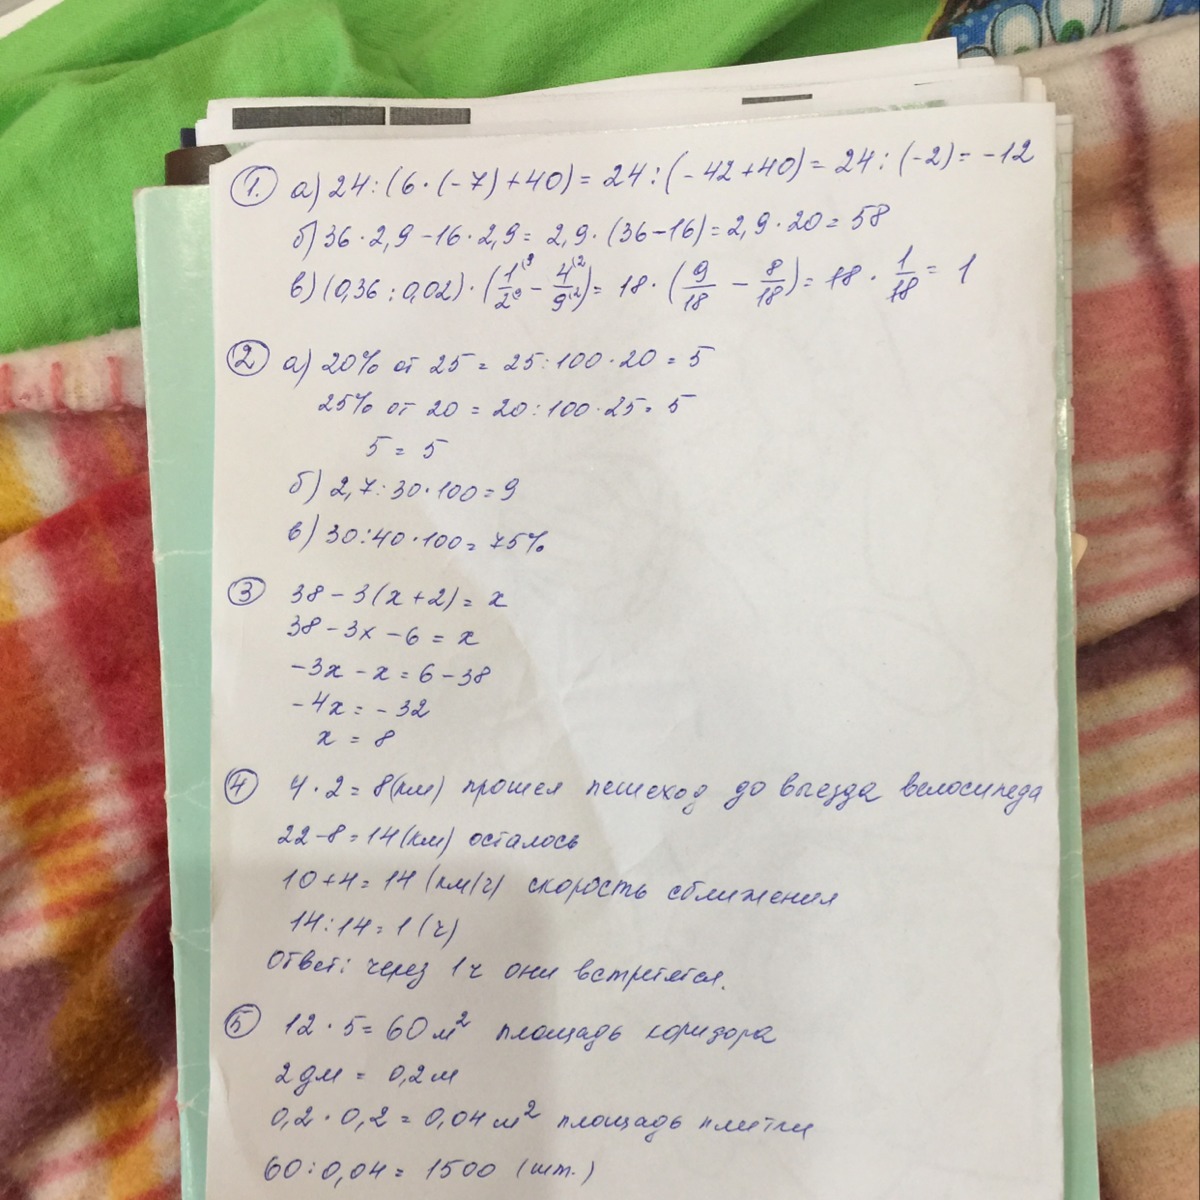 1. а) 24 : (6 · (-7) + 40) = 24 : (- 42 + 40) = 24 : (-2) = -12
б) 36 · 2,9 - 16 · 2,9 = 2,9 · (36 - 16) = 2,9 · 20 = 58
в) (0,36 : 0,02) · (1/2 - 4/9) = 18 · (9/18 - 8/18) = 18 · 1/18 = 1
2 а) 20% от 25 = 25 : 100 · 20 = 5
25% от 20 = 20 : 100 · 25 = 5
5 = 5
б) 2,7 : 30 · 100 = 9
в) 30 : 40 · 100 = 75%
3 38 - 3(x + 2) = x
38 - 3x - 6 = x
-3x - x = 6 - 38
-4x = - 32
x = 8
4 4 · 2 = 8 (км) прошел пешеход до выезда велосипеда
22 - 8 = 14 (км) осталось
10 + 4 = 14 (км/ч) скорость сближения
14 : 14 = 1 (ч)
Ответ: через 1 ч они встретятся.
5 12 · 5 = 60 м² площадь коридора
2 дм = 0,2 м
0,2 · 0,2 = 0,04 м² площадь плитки
60 : 0,04 = 1500 (шт.)